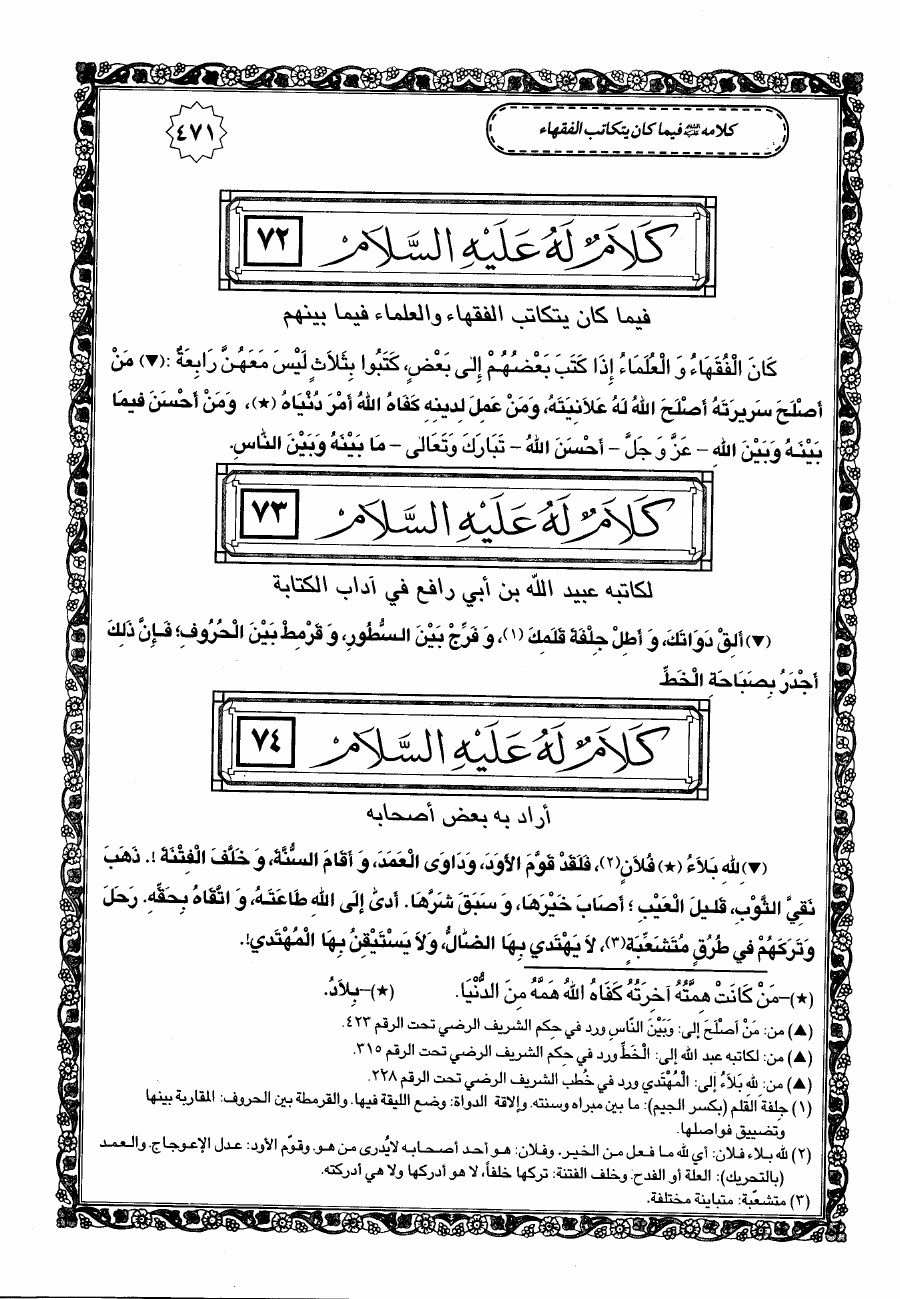 كلامه عليه السلام فيما كان يتكاتب الفقهاء
٤٧١
كَلَامٌ لَهُ عَلَيْهِ السَّلَامُ ٧٢
فيما كان يتكاتب الفقهاء والعلماء فيما بينهم
كَانَ الْفُقَهَاءُ وَ الْعُلَمَاءُ إِذَا كَتَبَ بَعْضُهُمْ إِلىٰ بَعْضٍ، كَتَبُوا بِثَلَاثٍ لَيْسَ مَعَهُنَّ رَابِعَةٌ :(▼) مَنْ
أَصْلَحَ سَرِيرَتَهُ أَصْلَحَ اللهُ لَهُ عَلَانِيَتَهُ، وَمَنْ عَمِلَ لِدِينِهِ كَفَاهُ اللهُ أَمْرَ دُنْيَاهُ (★)، وَمَنْ أَحْسَنَ فِيمَا
بَيْنَهُ وَبَيْنَ اللهِ – عَزَّ وَ جَلَّ – أَحْسَنَ اللهُ – تَبَارَكَ وَتَعَالىٰ – مَا بَيْنَهُ وَبَيْنَ النَّاسِ.
كَلَامٌ لَهُ عَلَيْهِ السَّلَامُ ٧٣
لكاتبه عبيد الله بن أبي رافع في آداب الكتابة
(▼) أَلِقْ دَوَاتَكَ، وَ أَطِلْ جِلْفَةَ قَلَمِكَ (١)، وَ فَرِّجْ بَيْنَ السُّطُورِ، وَ قَرْمِطْ بَيْنَ الْحُرُوفِ؛ فَإِنَّ ذٰلِكَ
أَجْدَرُ بِصَبَاحَةِ الْخَطِّ
كَلَامٌ لَهُ عَلَيْهِ السَّلَامُ ٧٤
أراد به بعض أصحابه
(▼) لِلهِ بَلَاءُ (★) فُلَانٍ (٢)، فَلَقَدْ قَوَّمَ الأَوَدَ، وَدَاوَى الْعَمَدَ، وَ أَقَامَ السُّنَّةَ، وَ خَلَّفَ الْفِتْنَةَ !. ذَهَبَ
نَقِيَّ الثَّوْبِ، قَلِيلَ الْعَيْبِ ؛ أَصَابَ خَيْرَهَا، وَ سَبَقَ شَرَّهَا. أَدىٰ إِلَى اللهِ طَاعَتَهُ، وَ اتَّقَاهُ بِحَقِّهِ. رَحَلَ
وَتَرَكَهُمْ في طُرُقٍ مُتَشَعِّبَةٍ (٣)، لاَ يَهْتَدي بِهَا الضّالُّ، وَلاَ يَسْتَيْقِنُ بِهَا الْمُهْتَدي!.
(★)–مَنْ كَانَتْ هِمَّتُهُ آخِرَتُهُ كَفَاهُ اللهُ هَمَّهُ مِنَ الدُّنْيَا. (★)–بِلَادُ.
(▲) من: مَنْ أَصْلَحَ إلى: وَبَيْنَ النَّاسِ ورد في حكم الشريف الرضي تحت الرقم ٤٢٣.
(▲) من: لكاتبه عبد الله إلى: الْخَطِّ ورد في حكم الشريف الرضي تحت الرقم ٣١٥.
(▲) من: لله بَلَاءُ إلى: الْمُهْتَدي ورد في خُطب الشريف الرضي تحت الرقم ٢٢٨.
(١) جِلفة القلم (بكسر الجيم): ما بين مبراه وسنته. وإلاقة الدواة: وضع الليقة فيها. والقرمطة بين الحروف: المقاربة بينها
وتضييق فواصلها.
(٢) لله بلاء فلان: أي لله ما فعل من الخير. وفلان: هو أحد أصحابه لايُدرى من هو. وقوّم الأود: عدل الإعوجاج. والعمد
(بالتحريك): العلة أو القدح. وخلف الفتنة: تركها خلفاً، لا هو أدركها ولا هي أدركته.
(٣) متشعّبة: متباينة مختلفة.